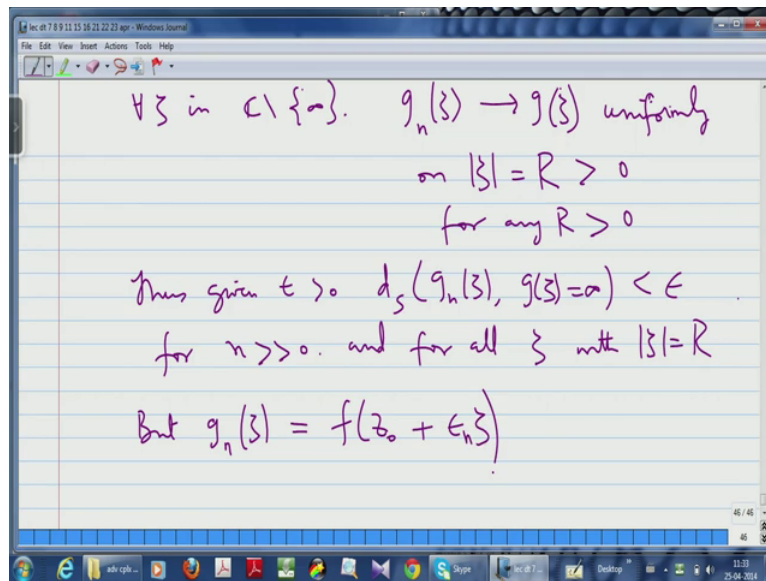 lec dt 7 8 9 11 15 16 21 22 23 apr - Windows Journal
File Edit View Insert Actions Tools Help
∀ ξ in ℂ \ {∞}. gₙ(ξ) → g(ξ) uniformly
on |ξ| = R > 0
for any R > 0
Thus given ϵ > 0 dₛ(gₙ(ξ), g(ξ)=∞) < ϵ
for n >> 0. and for all ξ with |ξ| = R
But gₙ(ξ) = f(z₀ + ϵₙξ)
46 / 46
46
adv cplx ... Skype lec dt 7 ... Desktop » 11:33
25-04-2014